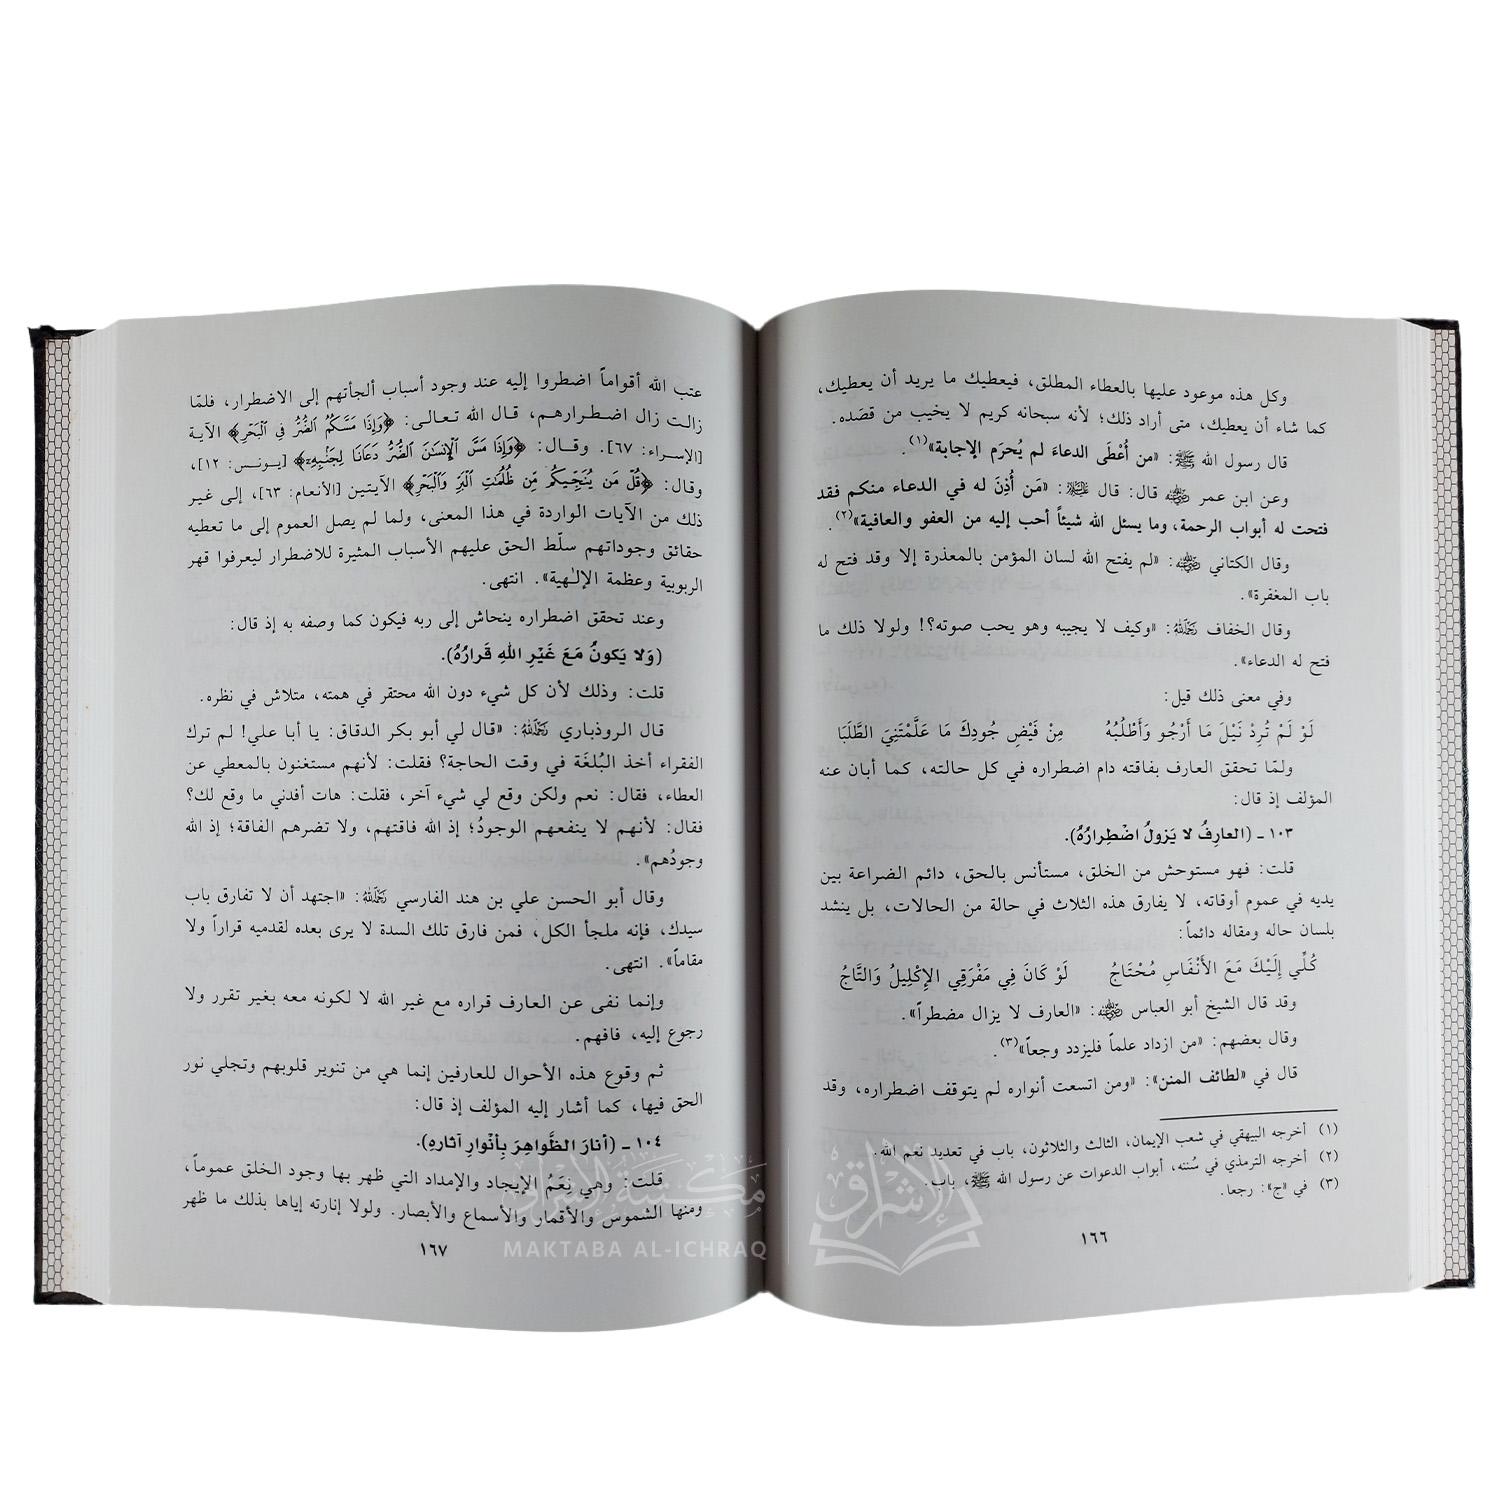 وكل هذه موعود عليها بالعطاء المطلق، فيعطيك ما يريد أن يعطيك،
كما شاء أن يعطيك، متى أراد ذلك؛ لأنه سبحانه كريم لا يخيب من قصَده.
قال رسول الله ﷺ: «من أُعْطَى الدعاءَ لم يُحرَم الإجابة»(١).
وعن ابن عمر رضي الله عنه قال: قال ﷺ: «مَن أُذِنَ له في الدعاء منكم فقد
فتحت له أبواب الرحمة، وما يسئل الله شيئاً أحب إليه من العفو والعافية»(٢).
وقال الكتاني رضي الله عنه: «لم يفتح الله لسان المؤمن بالمعذرة إلا وقد فتح له
باب المغفرة».
وقال الخفاف رحمه الله: «وكيف لا يجيبه وهو يحب صوته؟! ولولا ذلك ما
فتح له الدعاء».
وفي معنى ذلك قيل:
لَوْ لَمْ تُرِدْ نَيْلَ مَا أَرْجُو وَأَطْلُبُهُ مِنْ فَيْضِ جُودِكَ مَا عَلَّمْتَنِيَ الطَّلَبَا
ولمّا تحقق العارف بفاقته دام اضطراره في كل حالته، كما أبان عنه
المؤلف إذ قال:
١٠٣ - (العارِفُ لا يَزولُ اضْطِرارُهُ).
قلت: فهو مستوحش من الخلق، مستأنس بالحق، دائم الضراعة بين
يديه في عموم أوقاته، لا يفارق هذه الثلاث في حالة من الحالات، بل ينشد
بلسان حاله ومقاله دائماً:
كُلِّي إِلَيْكَ مَعَ الأَنْفَاسِ مُحْتَاجُ لَوْ كَانَ فِي مَفْرَقِي الإِكْلِيلُ وَالتَّاجُ
وقد قال الشيخ أبو العباس رضي الله عنه: «العارف لا يزال مضطراً».
وقال بعضهم: «من ازداد علماً فليزدد وجعاً»(٣).
قال في «لطائف المنن»: «ومن اتسعت أنواره لم يتوقف اضطراره، وقد
(١) أخرجه البيهقي في شعب الإيمان، الثالث والثلاثون، باب في تعديد نعم الله.
(٢) أخرجه الترمذي في سُننه، أبواب الدعوات عن رسول الله ﷺ، باب.
(٣) في «ج»: رجعا.
١٦٦
عتب الله أقواماً اضطروا إليه عند وجود أسباب ألجأتهم إلى الاضطرار، فلمّا
زالت زال اضطرارهم، قال الله تعالى: ﴿وَإِذَا مَسَّكُمُ ٱلضُّرُّ فِي ٱلْبَحْرِ﴾ الآية
[الإسراء: ٦٧]. وقال: ﴿وَإِذَا مَسَّ ٱلْإِنسَٰنَ ٱلضُّرُّ دَعَانَا لِجَنۢبِهِۦ﴾ [يونس: ١٢]،
وقال: ﴿قُلْ مَن يُنَجِّيكُم مِّن ظُلُمَٰتِ ٱلْبَرِّ وَٱلْبَحْرِ﴾ الآيتين [الأنعام: ٦٣]، إلى غير
ذلك من الآيات الواردة في هذا المعنى، ولما لم يصل العموم إلى ما تعطيه
حقائق وجوداتهم سلّط الحق عليهم الأسباب المثيرة للاضطرار ليعرفوا قهر
الربوبية وعظمة الإلٰهية». انتهى.
وعند تحقق اضطراره ينحاش إلى ربه فيكون كما وصفه به إذ قال:
(وَلا يَكونُ مَعَ غَيْرِ اللهِ قَرارُهُ).
قلت: وذلك لأن كل شيء دون الله محتقر في همته، متلاش في نظره.
قال الروذباري رحمه الله: «قال لي أبو بكر الدقاق: يا أبا علي! لم ترك
الفقراء أخذ البُلغَة في وقت الحاجة؟ فقلت: لأنهم مستغنون بالمعطي عن
العطاء، فقال: نعم ولكن وقع لي شيء آخر، فقلت: هات أفدني ما وقع لك؟
فقال: لأنهم لا ينفعهم الوجودُ؛ إذ الله فاقتهم، ولا تضرهم الفاقة؛ إذ الله
وجودُهم».
وقال أبو الحسن علي بن هند الفارسي رحمه الله: «اجتهد أن لا تفارق باب
سيدك، فإنه ملجأ الكل، فمن فارق تلك السدة لا يرى بعده لقدميه قراراً ولا
مقاماً». انتهى.
وإنما نفى عن العارف قراره مع غير الله لا لكونه معه بغير تقرر ولا
رجوع إليه، فافهم.
ثم وقوع هذه الأحوال للعارفين إنما هي من تنوير قلوبهم وتجلي نور
الحق فيها، كما أشار إليه المؤلف إذ قال:
١٠٤ - (أنارَ الظَّواهِرَ بِأنْوارِ آثارِهِ).
قلت: وهي نِعَمُ الإيجاد والإمداد التي ظهر بها وجود الخلق عموماً،
ومنها الشموس والأقمار والأسماع والأبصار. ولولا إنارته إياها بذلك ما ظهر
١٦٧
مكتبة الإشراق
MAKTABA AL-ICHRAQ
الإشراق